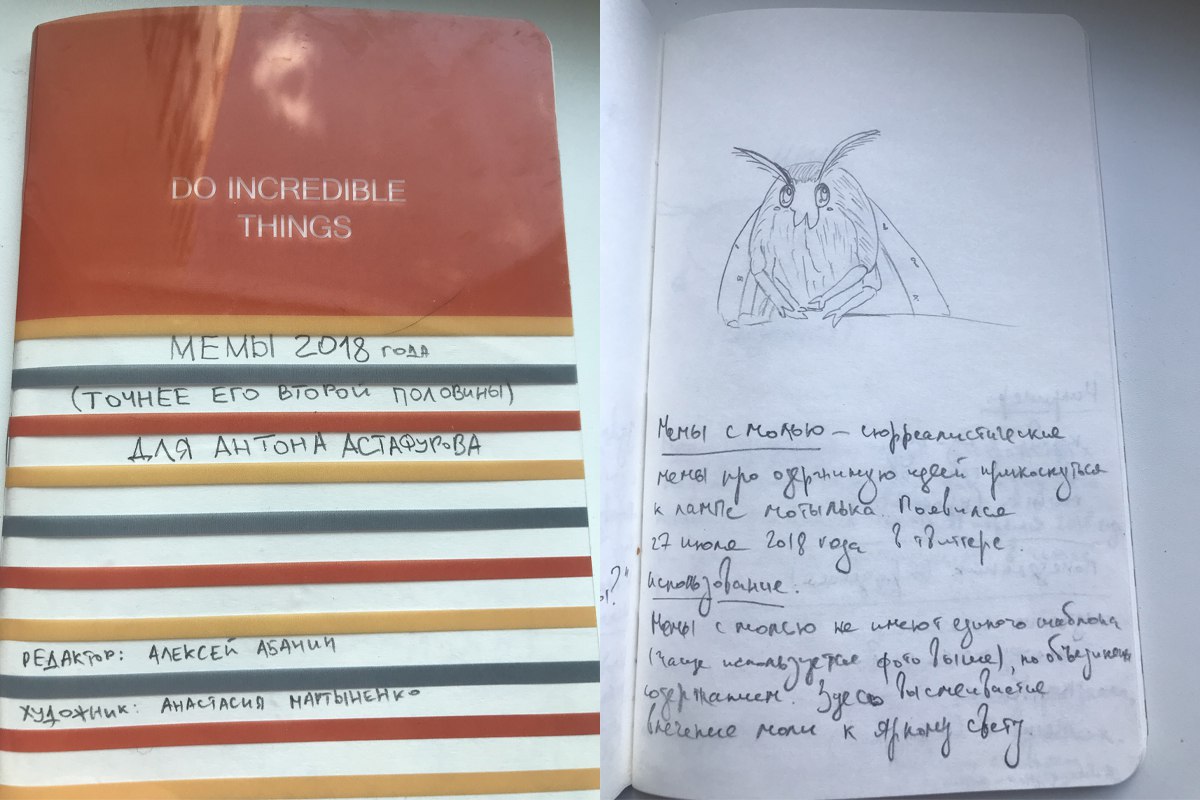 DO INCREDIBLE
THINGS
МЕМЫ 2018 ГОДА
(ТОЧНЕЕ ЕГО ВТОРОЙ ПОЛОВИНЫ)
ДЛЯ АНТОНА АСТАФУРОВА
РЕДАКТОР: АЛЕКСЕЙ АБАНИН
ХУДОЖНИК: АНАСТАСИЯ МАРТЫНЕНКО
Мемы с молью – сюрреалистические
мемы про одержимую идеей прикоснуться
к лампе мотылька. Появился
27 июля 2018 года в твиттере.
использование.
Мемы с молью не имеют единого шаблона
(чаще используется фото выше), но объединены
содержанием. Здесь высмеивается
влечение моли к яркому свету